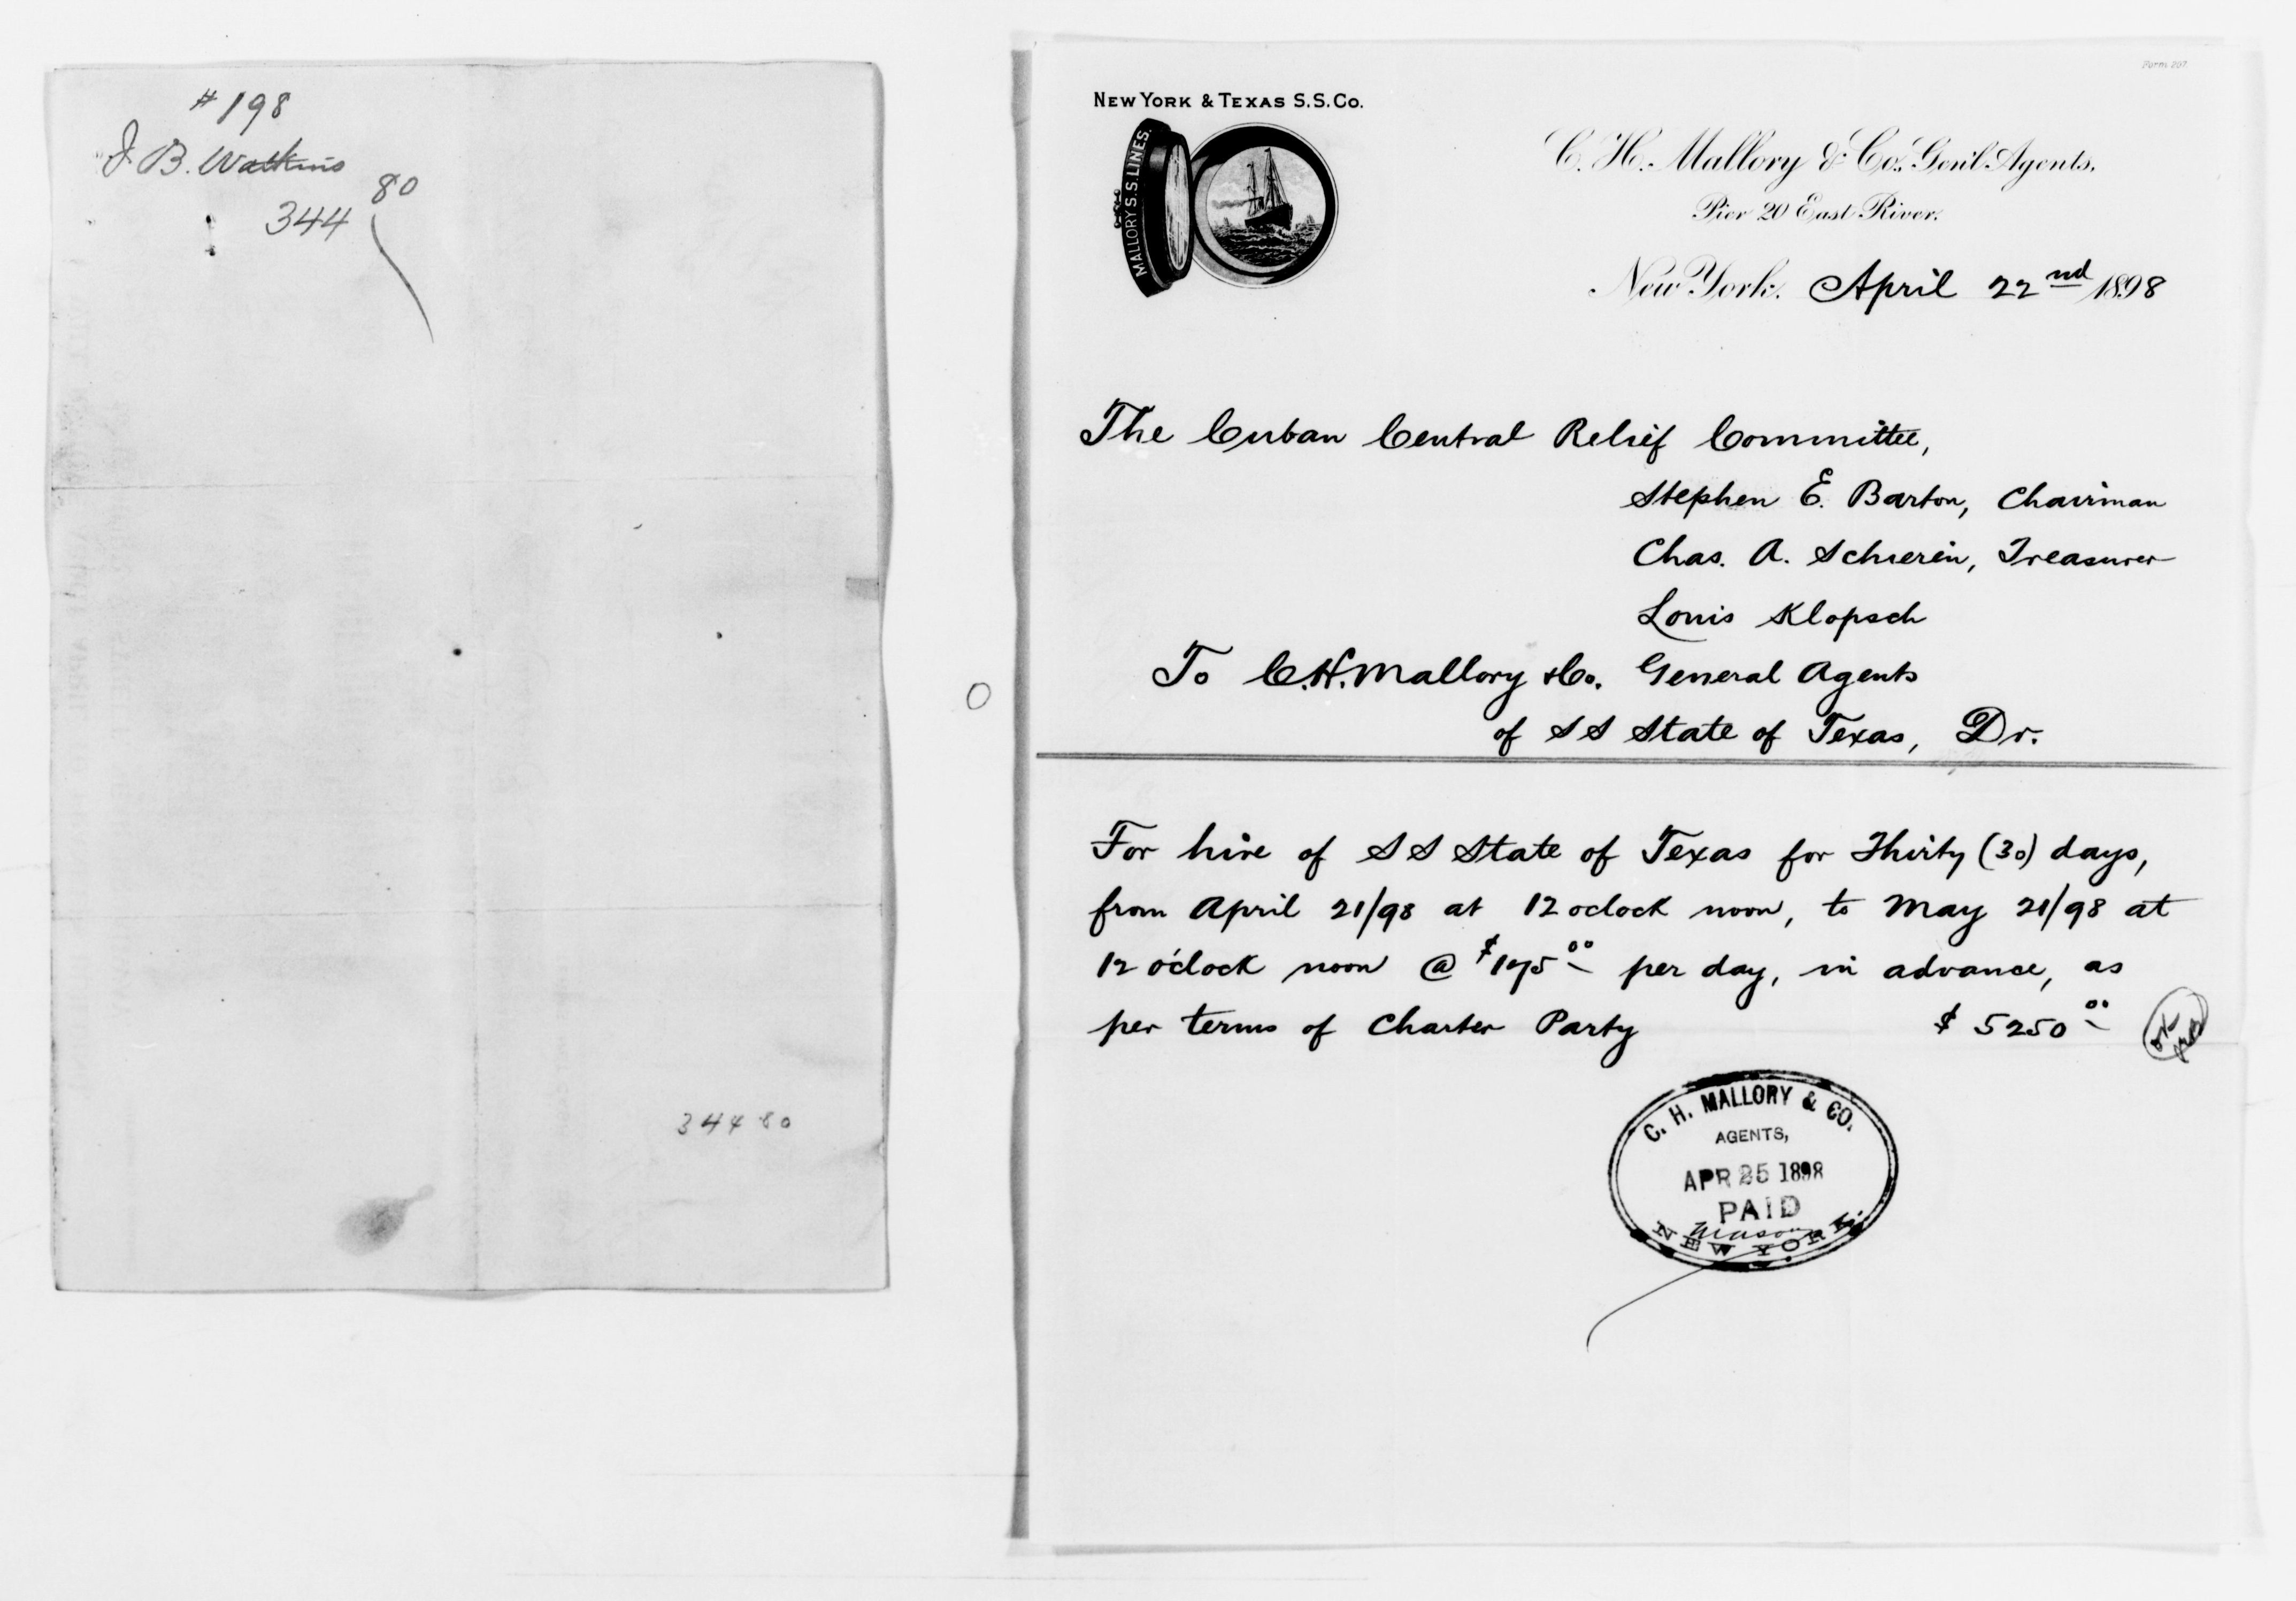 # 198
J B. Watkins
344 80
344 80
Form 207.
NEW YORK & TEXAS S.S. CO.
MALLORY S.S. LINES.
C. H. Mallory & Co., Gen'l Agents.
Pier 20 East River.
New York. April 22nd 1898
The Cuban Central Relief Committee,
Stephen E. Barton, Chairman
Chas. A. Schieren, Treasurer
Louis Klopsch
To C.H. Mallory & Co. General Agents
of SS State of Texas, Dr.
For hire of SS State of Texas for Thirty (30) days,
from April 21/98 at 12 oclock noon, to May 21/98 at
12 o'clock noon @ $175 00 per day, in advance, as
per terms of Charter Party $ 5250 00
C. H. MALLORY & CO.
AGENTS,
APR 25 1898
PAID
Mason
NEW YORK